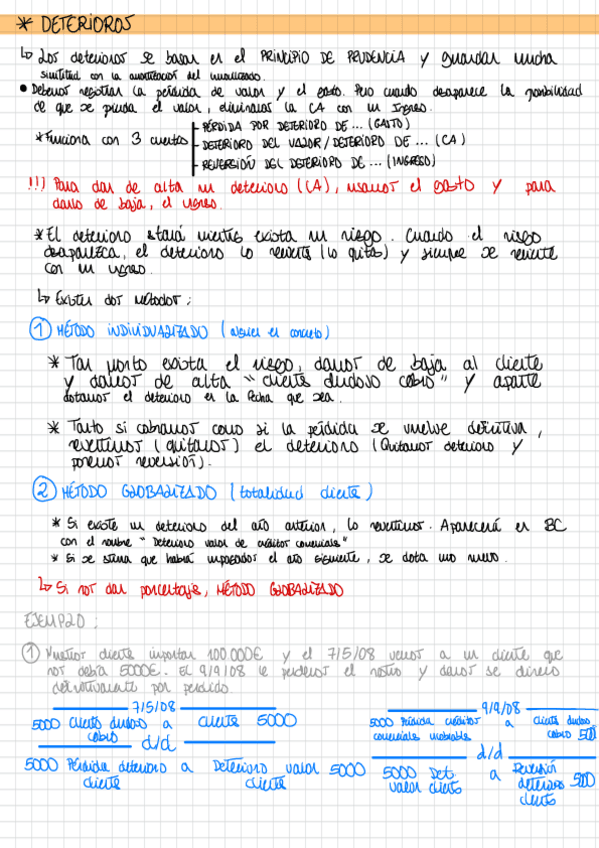 * DETERIOROS
↳ Los deterioros se basan en el PRINCIPIO DE PRUDENCIA y guardan mucha
similitud con la amortización del inmovilizado.
• Debemos registrar la pérdida de valor y el gasto. Pero cuando desaparece la posibilidad
de que se pierda el valor, eliminamos la CA con un Ingreso.
* Funciona con 3 cuentas
- PÉRDIDA POR DETERIORO DE ... (GASTO)
- DETERIORO DEL VALOR / DETERIORO DE ... (CA)
- REVERSIÓN DEL DETERIORO DE ... (INGRESO)
!!) Para dar de alta un deterioro (CA), usamos el gasto y para
darlo de baja, el ingreso.
* El deterioro estará mientras exista un riesgo. Cuando el riesgo
desaparezca, el deterioro lo revierte (lo quitas) y siempre se revierte
con un ingreso.
↳ Existen dos métodos:
1 MÉTODO INDIVIDUALIZADO (alguien en concreto)
* Tan pronto exista el riesgo, damos de baja al cliente
y damos de alta "cliente dudoso cobro" y aparte
dotamos el deterioro en la fecha que sea.
* Tanto si cobramos como si la pérdida se vuelve definitiva,
revertimos (quitamos) el deterioro (Quitamos deterioro y
ponemos reversión).
2 MÉTODO GLOBALIZADO (totalidad cliente)
* Si existe un deterioro del año anterior, lo revertimos. Aparecerá en BC
con el nombre "Deterioro valor de créditos comerciales"
* Si se estima que habrá impagados el año siguiente, se dota uno nuevo.
↳ Si nos dan porcentajes, MÉTODO GLOBALIZADO
EJEMPLO:
1 Nuestros clientes importan 100.000€ y el 7/5/08 vemos a un cliente que
nos debía 5000€. El 9/9/08 le perdemos el rastro y damos ese dinero
definitivamente por perdido
7/5/08
5000 Cliente dudoso cobro a Cliente 5000
d/d
5000 Pérdida deterioro cliente a Deterioro valor cliente 5000
9/9/08
5000 Pérdida créditos comerciales incobrables a Cliente dudoso cobro 5000
d/d
5000 Det. valor cliente a Reversión deterioro cliente 5000